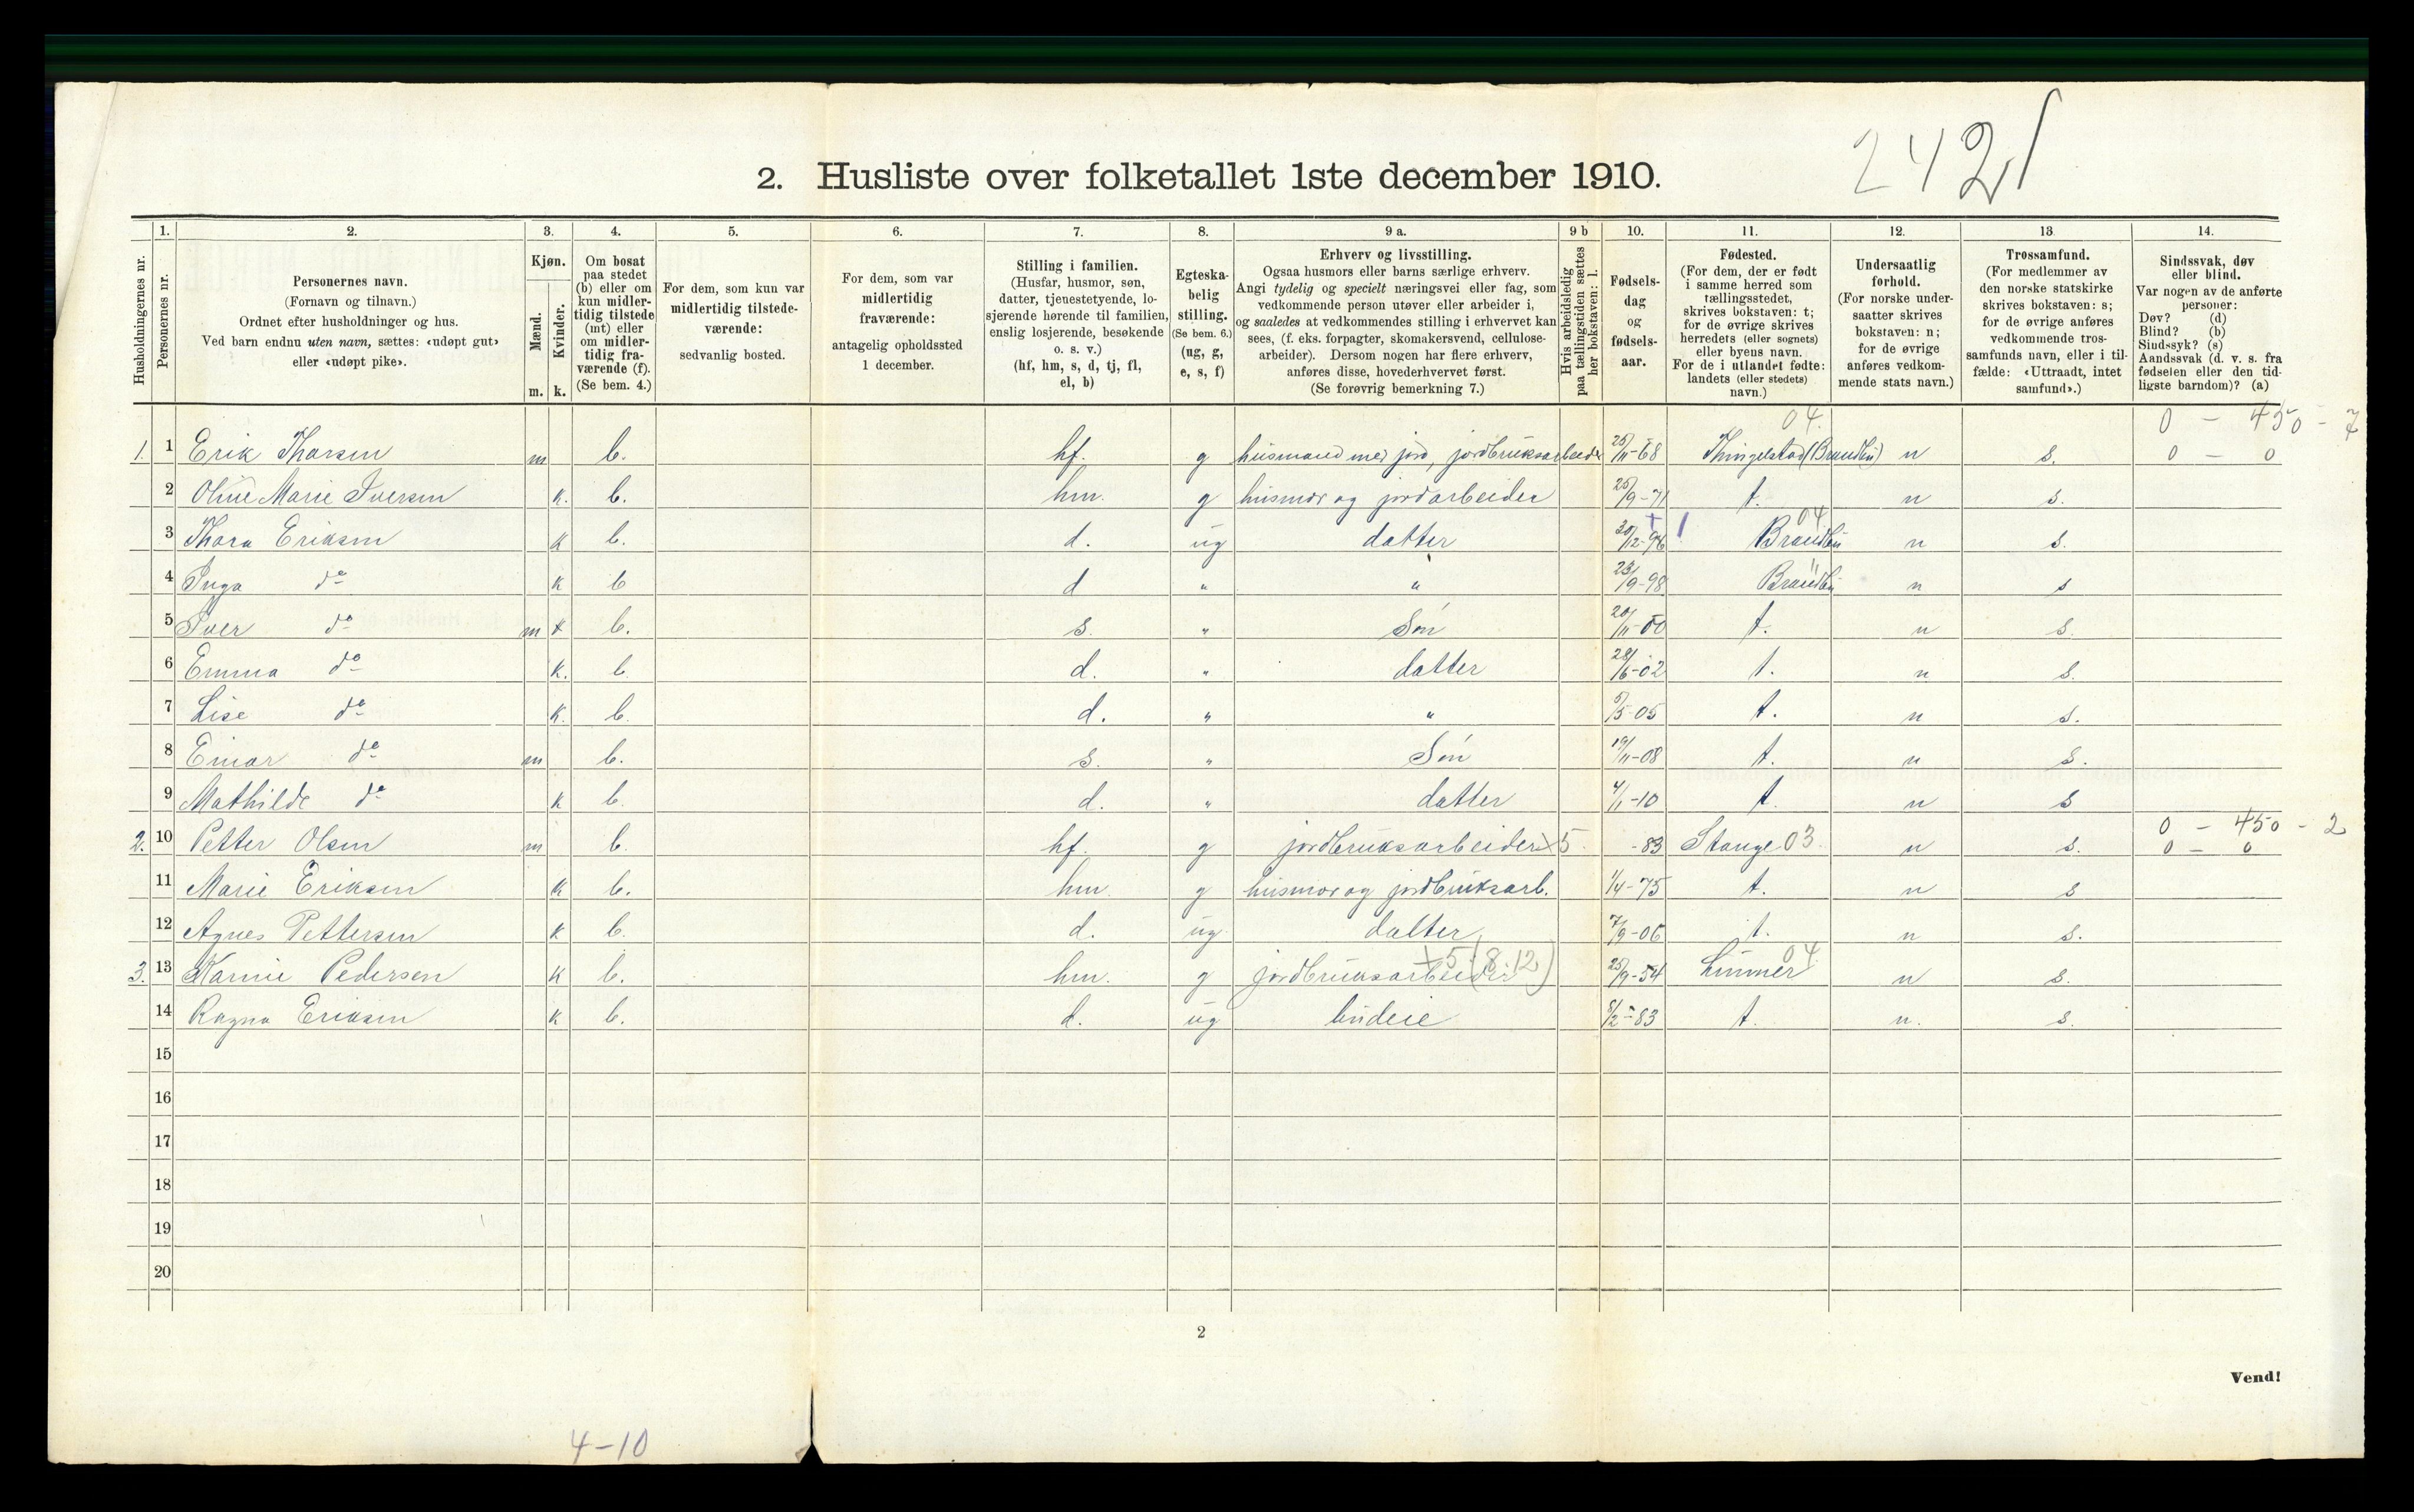 2421
2. Husliste over folketallet 1ste december 1910.
Husholdningernes nr.
1.
Personernes nr.
2.
Personernes navn.
(Fornavn og tilnavn.)
Ordnet efter husholdninger og hus.
Ved barn endnu uten navn, sættes: «udøpt gut»
eller «udøpt pike».
3.
Kjøn.
Mænd.
Kvinder.
m. k.
4.
Om bosat
paa stedet
(b) eller om
kun midler-
tidig tilstede
(mt) eller
om midler-
tidig fra-
værende (f).
(Se bem. 4.)
5.
For dem, som kun var
midlertidig tilstede-
værende:
sedvanlig bosted.
6.
For dem, som var
midlertidig
fraværende:
antagelig opholdssted
1 december.
7.
Stilling i familien.
(Husfar, husmor, søn,
datter, tjenestetyende, lo-
sjerende hørende til familien,
enslig losjerende, besøkende
o. s. v.)
(hf, hm, s, d, tj, fl,
el, b)
8.
Egteska-
belig
stilling.
(Se bem. 6.)
(ug, g,
e, s, f)
9 a.
Erhverv og livsstilling.
Ogsaa husmors eller barns særlige erhverv.
Angi tydelig og specielt næringsvei eller fag, som
vedkommende person utøver eller arbeider i,
og saaledes at vedkommendes stilling i erhvervet kan
sees, (f. eks. forpagter, skomakersvend, cellulose-
arbeider). Dersom nogen har flere erhverv,
anføres disse, hovederhvervet først.
(Se forøvrig bemerkning 7.)
9 b
Hvis arbeidsledig
paa tællingstiden sættes
her bokstaven: l.
10.
Fødsels-
dag
og
fødsels-
aar.
11.
Fødested.
(For dem, der er født
i samme herred som
tællingsstedet,
skrives bokstaven: t;
for de øvrige skrives
herredets (eller sognets)
eller byens navn.
For de i utlandet fødte:
landets (eller stedets)
navn.)
12.
Undersaatlig
forhold.
(For norske under-
saatter skrives
bokstaven: n;
for de øvrige
anføres vedkom-
mende stats navn.)
13
Trossamfund.
(For medlemmer av
den norske statskirke
skrives bokstaven: s;
for de øvrige anføres
vedkommende tros-
samfunds navn, eller i til-
fælde: «Uttraadt, intet
samfund».)
14.
Sindssvak, døv
eller blind.
Var nogen av de anførte
personer:
Døv? (d)
Blind? (b)
Sindssyk? (s)
Aandssvak (d. v. s. fra
fødselen eller den tid-
ligste barndom)? (a)
04. 0 - 450 - 7
1. 1 Erik Thorsen m b. hf. g husmand med jord, jordbruksarbeider 25/11-68 Thingelstad (Brandbu) n s. 0 - 0
2 Oline Marie Iversen k. b. hm. g husmor og jordarbeider 25/9-71 t. n s.
04
3 Thora Eriksen k b. d. ug datter 20/12-96 Brandbu n s.
4 Inga do k b d " " 23/9-98 Brandbu n s
5 Iver do m k b. s. " Søn 20/11-00 t. n s.
6 Emma do k. b. d. " datter 28/6-02 t. n s.
7 Lise do k. b. d. " " 5/5-05 t. n s.
8 Einar do m b. s. " Søn 19/11-08 t. n s.
9 Mathilde do k b. d. " datter 4/1-10 t. n s
0 - 450 - 2
2. 10 Petter Olsen m b. hf. g jordbruksarbeider x 5. -83 Stange 03. n s. 0 - 0
11 Marie Eriksen k b. hm. g husmor og jordbruksarb. 1/4-75 t. n s
12 Agnes Pettersen k b. d. ug. datter 7/9-06 t. n s.
+5 (8.12) 04
3. 13 Karine Pedersen k b. hm. g jordbruksarbeider 25/9-54 Lunner n s.
14 Ragna Eriksen k b. d. ug budeie 8/2-83 t. n. s.
15
16
17
18
19
20
2
Vend!
4-10